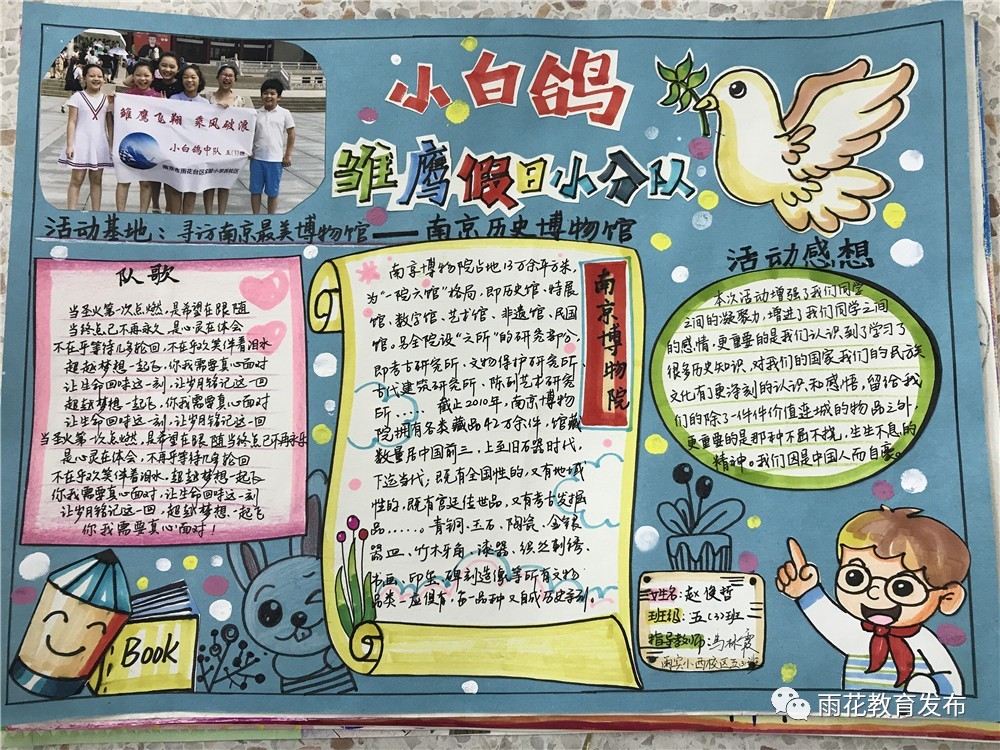 雏鹰飞翔 乘风破浪
小白鸽中队
小白鸽
雏鹰假日小分队
活动基地：寻访南京最美博物馆——南京历史博物馆
队歌
当圣火第一次点燃，是希望在跟随
当终点已不再永久，是心灵在体会
不在乎等待几多轮回，不在乎欢笑伴着泪水
超越梦想一起飞，你我需要真心面对
让生命回味这一刻，让岁月铭记这一回
超越梦想一起飞，你我需要真心面对
让生命回味这一刻，让岁月铭记这一回
当圣火第一次点燃，是希望在跟随当终点已不再永久
是心灵在体会，不再乎等待几多轮回
不在乎欢笑伴着泪水，超越梦想一起飞
你我需要真心面对，让生命回味这一刻
让岁月铭记这一回，超越梦想一起飞
你我需要真心面对！
南京博物院占地13万余平方米，
为“一院六馆”格局，即历史馆、特展
馆、数字馆、艺术馆、非遗馆、民国
馆，另全院设“六所”的研究部分，
即考古研究所、文物保护研究所、
古代建筑研究所、陈列艺术研究
所……截止2010年，南京博物
院拥有各类藏品42万余件，馆藏
数量居中国前三，上至旧石器时代，
下迄当代；既有全国性的，又有地域
性的，既有宫廷传世品，又有考古发掘
品……。青铜、玉石、陶瓷、金银
器皿、竹木牙角、漆器、丝织刺绣、
书画、印玺、碑刻造像等所有文物
品类一应俱有，每一品种又自成历史系列。
南京博物院
活动感想
本次活动增强了我们同学
之间的凝聚力，增进了我们同学之间
的感情，更重要的是我们认识到了学习了
很多历史知识，对我们的国家我们的民族
文化有了更深刻的认识和感悟，留给我
们的除了一件件价值连城的物品之外，
更重要的是那种不屈不挠，生生不息的
精神。我们因是中国人而自豪。
Book
姓名：赵俊哲
班级：五（3）班
指导教师：冯林霞
雨花教育发布